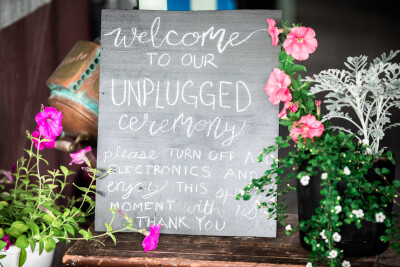 welcome
TO OUR
UNPLUGGED
ceremony
please TURN OFF ALL
ELECTRONICS AND
enjoy THIS special
MOMENT with us
THANK YOU